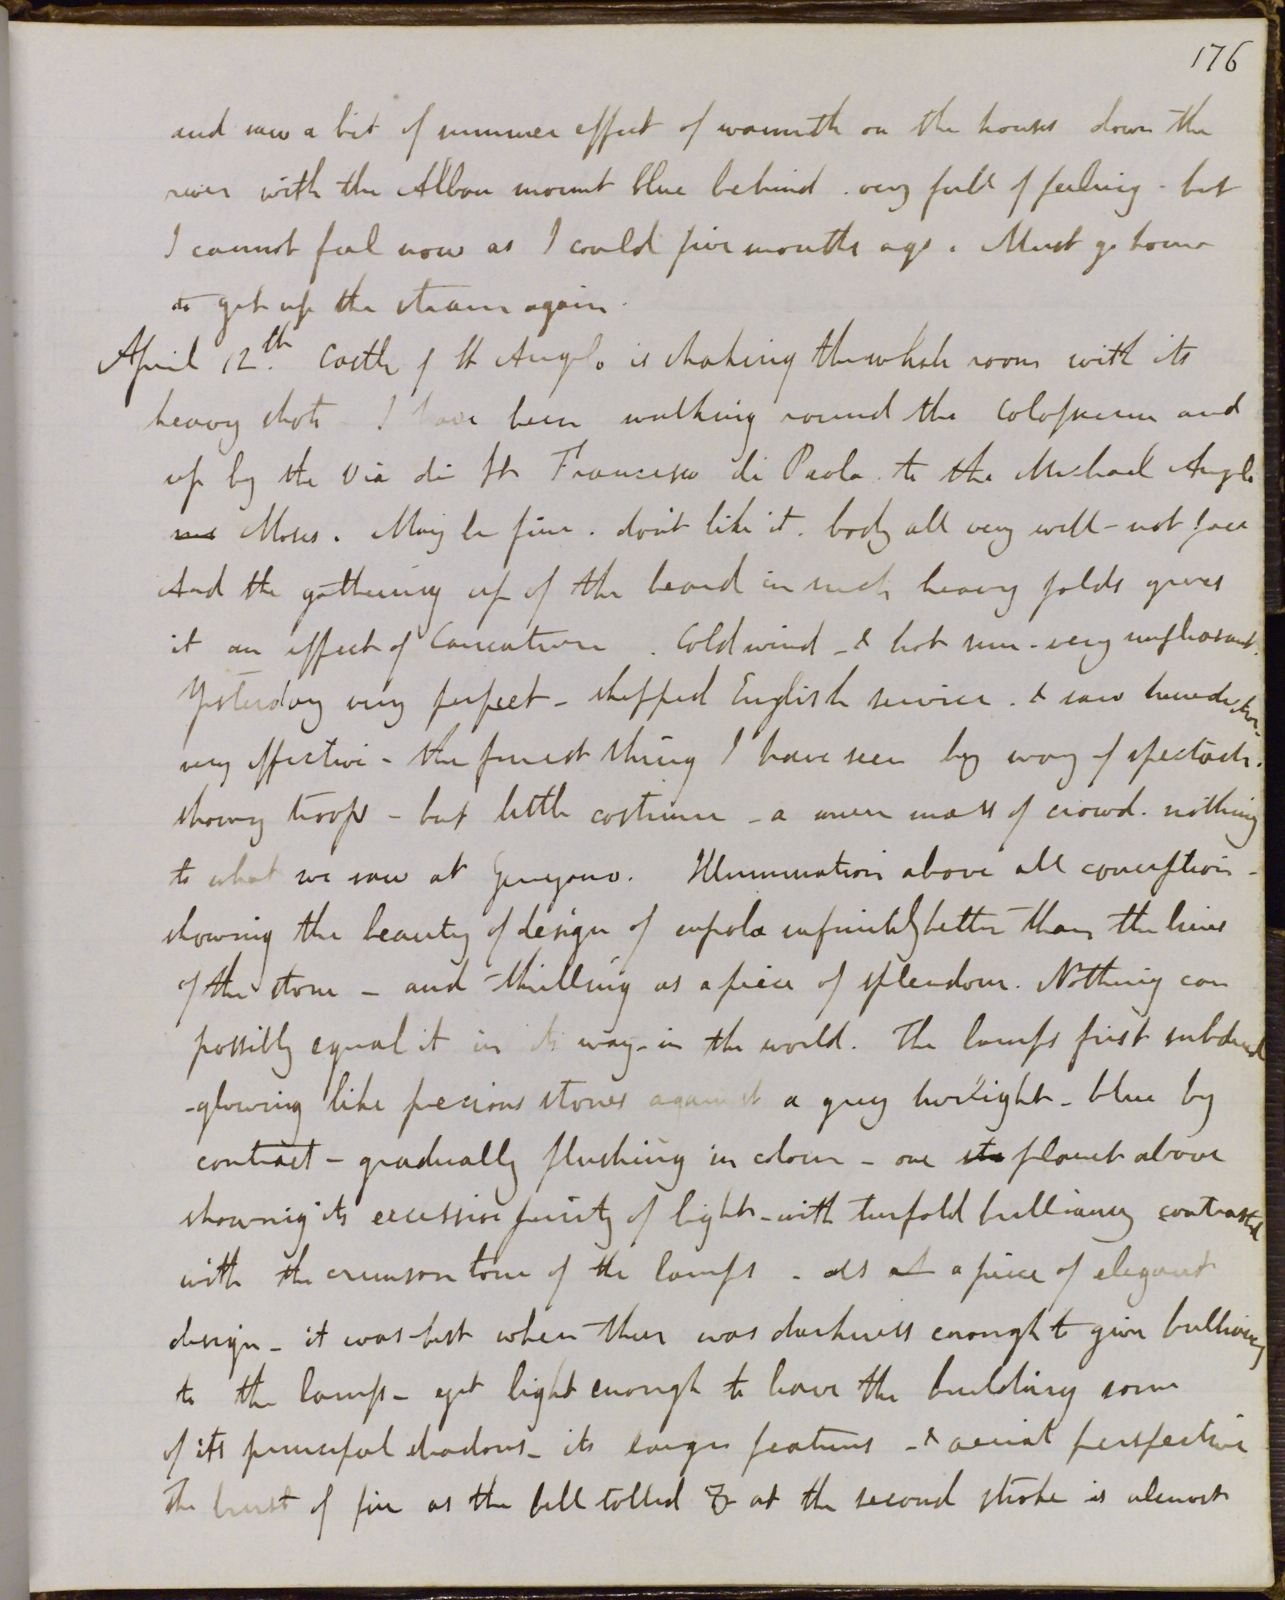 176
and saw a bit of summer effect of warmth on the houses down the
river with the Alban mount blue behind. very full of feeling - but
I cannot feel now as I could five months ago. Must go home
to get up the steam again.
April 12th. Castle of St Angelo is shaking the whole room with its
heavy shots - I have been walking round the Colosseum and
up by the Via di St Francesco di Paola. to the Michael Angelo
Moses. May be fine. don't like it. body all very well - not face
And the gathering up of the beard in such heavy folds gives
it an effect of Caricature. Cold wind - & hot sun - very unpleasant.
Yesterday very perfect - skipped English service. & saw benediction -
very effective - the finest thing I have seen by way of spectacle.
showy troops - but little costume - a mere mass of crowd. nothing
to what we saw at Genzano. Illumination above all conception -
showing the beauty of design of cupola infinitely better than the lines
of the stone - and thrilling as a piece of splendour. Nothing can
possibly equal it in its way - in the world. The lamps first subdued
- glowing like precious stones against a grey twilight - blue by
contrast - gradually flushing in colour - one sta planet above
showing its excessive purity of light - with tenfold brilliancy contrasted
with the crimson tone of the lamps - As at a piece of elegant
design - it was best when there was darkness enough to give brilliancy
to the lamps - yet light enough to leave the building some
of its principal shadows - its larger features - & aerial perspective
The burst of fire as the bell tolled & at the second stroke is almost